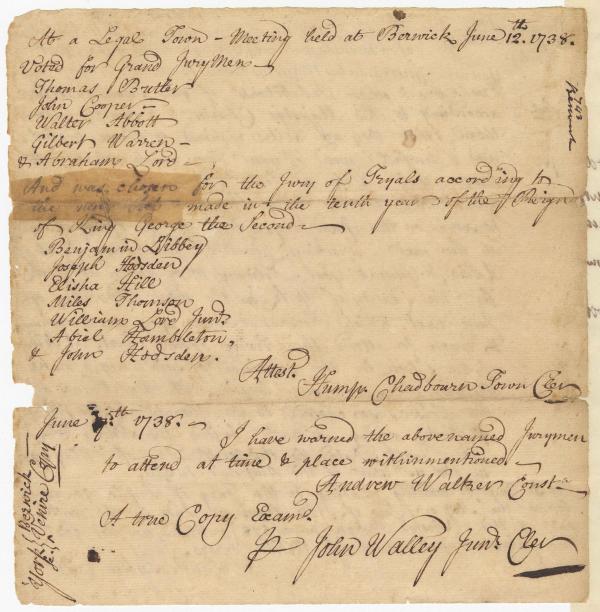 At a Legal Town-Meeting held at Berwick June 12.th 1738.
Voted for Grand Jurymen
Thomas Butler
John Cooper
Walter Abbott
Gilbert Warren
& Abraham Lord
And was chosen for the Jury of Tryals according to
the new Act made in the tenth year of the Reign
of King George the Second
Benjamin Libbey
Joseph Hodsden
Elisha Hill
Miles Thomson
William Lord Junr.
Abiel Hambleton,
& John Hodsden.
Attest.
Hump. Chadbourn Town Cler
June th. 1738.
I have warned the abovenamed Jurymen
to attend at time & place withinmentioned
Andrew Walker Const.a
A true Copy Examd.
John Walley Junr. Cler
Berwick
York Venire Copy
Berwick